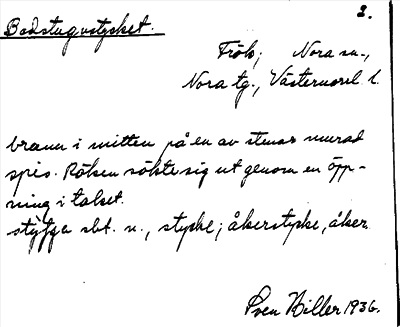 Badstugustycket.
2.
Frök; Nora sn.,
Nora tg., Västernorrl. l.
brann i mitten på en av stenar murad
spis. Röken sökte sig ut genom en öpp-
ning i taket.
sbt. n., stycke; åkerstycke, åker
Sven Hiller 1936.